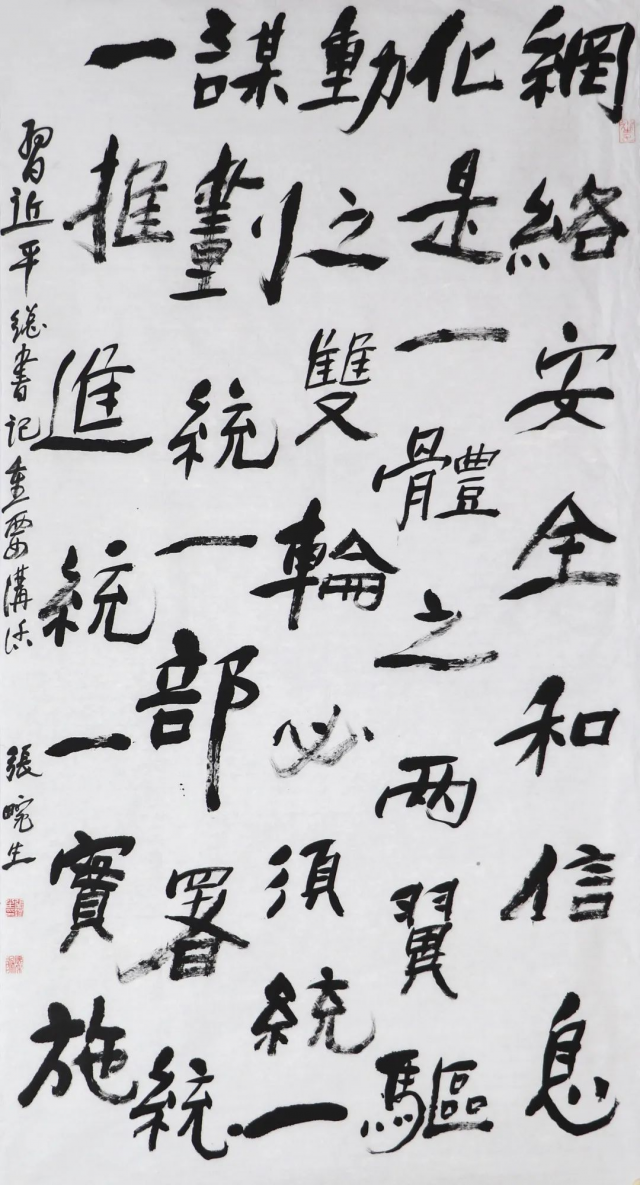 網絡安全和信息
化是一體之两翼驅
動之雙輪必須統一
謀劃統一部署統
一推進統一實施
習近平總書記重要講話 張畹生